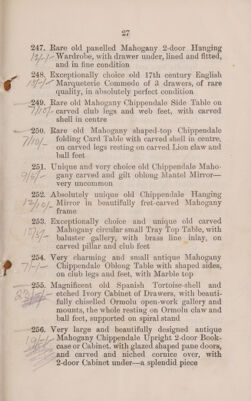 27
247. Rare old panelled Mahogany 2-door Hanging
Wardrobe, with drawer under, lined and fitted,
and in fine condition
248. Exceptionally choice old 17th century English
Marqueterie Commode of 3 drawers, of rare
quality, in absolutely perfect condition
249. Rare old Mahogany Chippendale Side Table on
7/10/- carved club legs and web feet, with carved
shell in centre
250. Rare old Mahogany shaped-top Chippendale
7/10/- folding Card Table with carved shell in centre,
on carved legs resting on carved Lion claw and
ball feet
251. Unique and very choice old Chippendale Maho-
gany carved and gilt oblong Mantel Mirror—
very uncommon
252. Absolutely unique old Chippendale Hanging
Mirror in beautifully fret-carved Mahogany
frame
253. Exceptionally choice and unique old carved
Mahogany circular small Tray Top Table, with
baluster gallery, with brass line inlay, on
carved pillar and club feet
254. Very charming and small antique Mahogany
Chippendale Oblong Table with shaped sides,
on club legs and feet, with Marble top
255. Magnificent old Spanish Tortoise-shell and
etched Ivory Cabinet of Drawers, with beauti-
fully chiselled Ormolu open-work gallery and
mounts, the whole resting on Ormolu claw and
ball feet, supported on spiral stand
256. Very large and beautifully designed antique
Mahogany Chippendale Upright 2-door Book-
case or Cabinet, with glazed shaped pane doors,
and carved and niched cornice over, with
2-door Cabinet under—a splendid piece